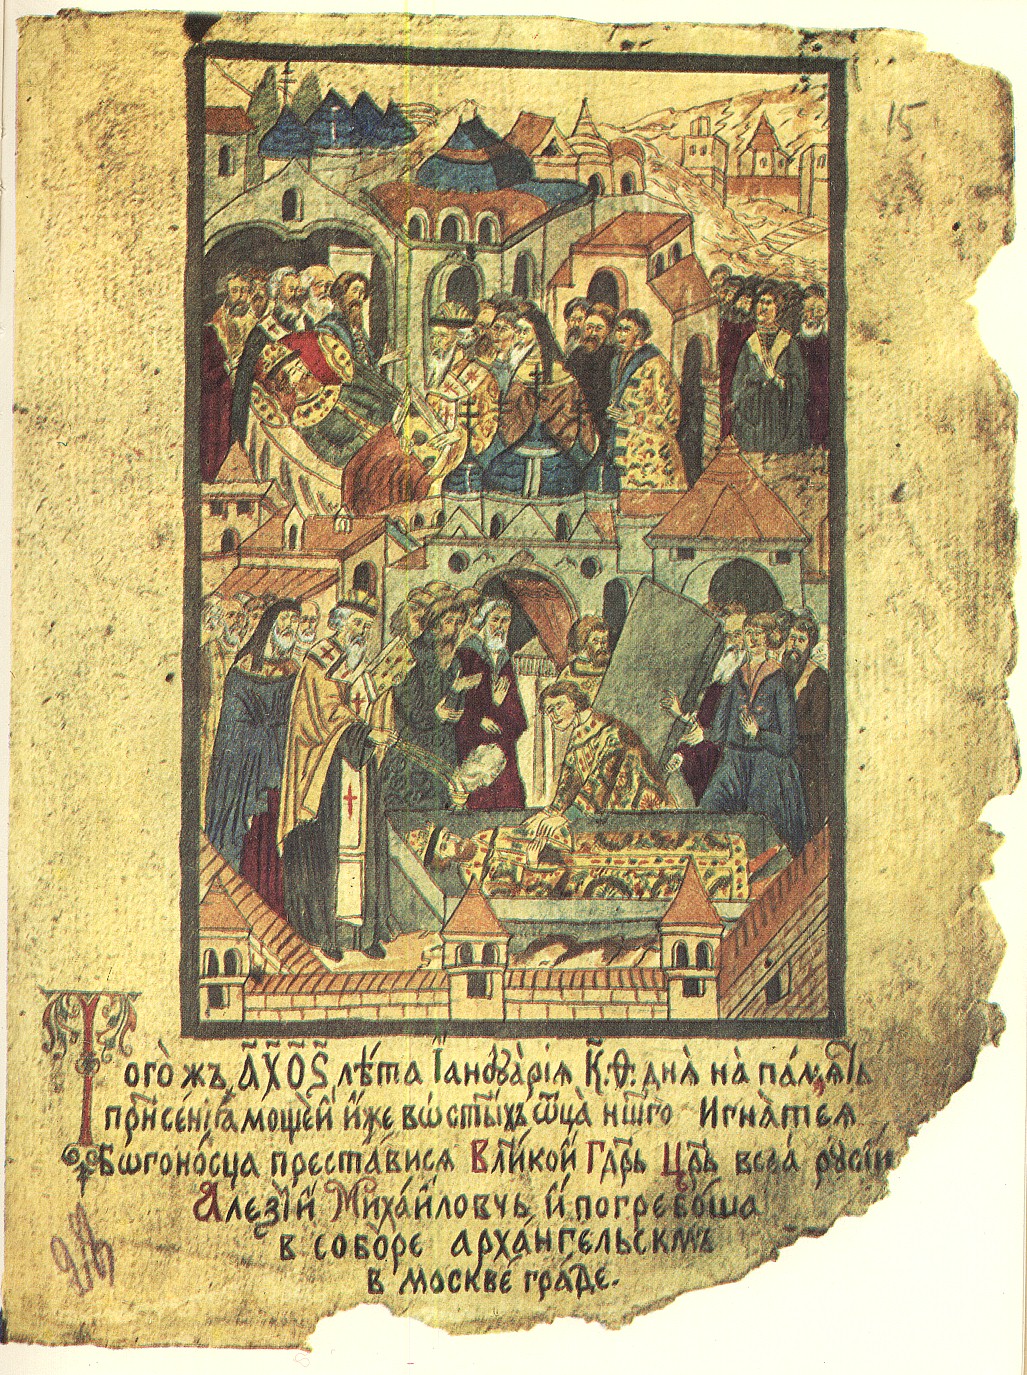 15
Того̀ жъ ҂а҃х҃о҃ѕ҃ лѣ́та І҆аннꙋа̀рїѧ к҃.ѳ҃. днѧ̀ на̀ па́мѧть
принсе́нїѧ моще́й и́же во ст҃ы́хъ ѻ҆тца̀ нш҃го Игна̀тея
Бѡгоно́сца преста́висѧ Вели́кой Гд҃рь Цр҃ь всеа́ рꙋсі́и
Алеѯі́й Миха́йловчь и҆ погребо́ша
в собо́ре арха́нгельскмъ
в москве́ гра́де.